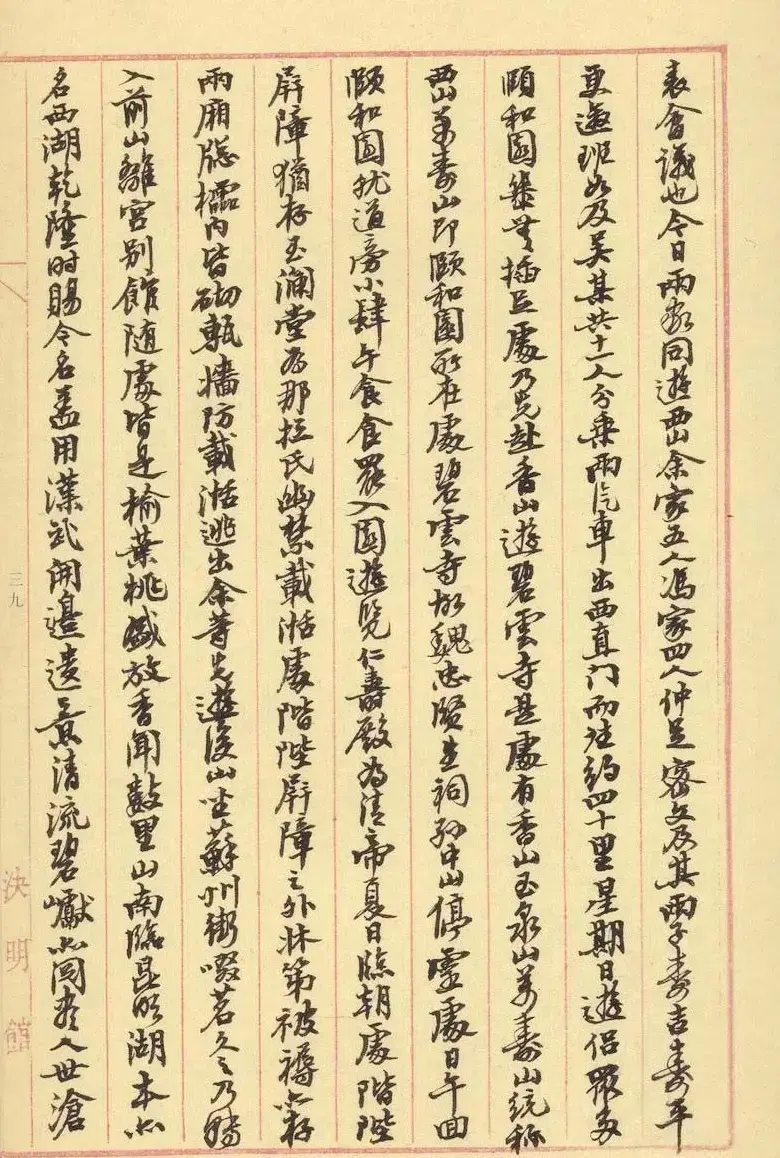 表會議也今日兩家同遊西山余家五人馮家四人仲足密文及其兩子壽吉壽平
更邀班女及吳某共十一人分乘兩汽車出西直门而往約四十里星期日遊侶眾多
頤和園幾無插足處乃先赴香山遊碧雲寺是處有香山玉泉山萬壽山統称
西山萬壽山即頤和園所在處碧雲寺故魏忠賢生祠孙中山停靈處日午回
頤和園就道旁小肆午食食罷入園遊览仁壽殿為清帝夏日臨朝處階陛
屏障猶存玉瀾堂为那拉氏幽禁載湉處階陛屏障之外牀第被褥亦存
兩廂牕櫺內皆砌甎墙防載湉逃出余等先遊後山坐蘇州街啜茗久之乃轉
入前山離宮别館随處皆是榆葉桃盛放香聞數里山南臨昆明湖本亦
名西湖乾隆时賜今名盖用漢武開邊遺意清流碧巘亦闾世滄
三九
決明館